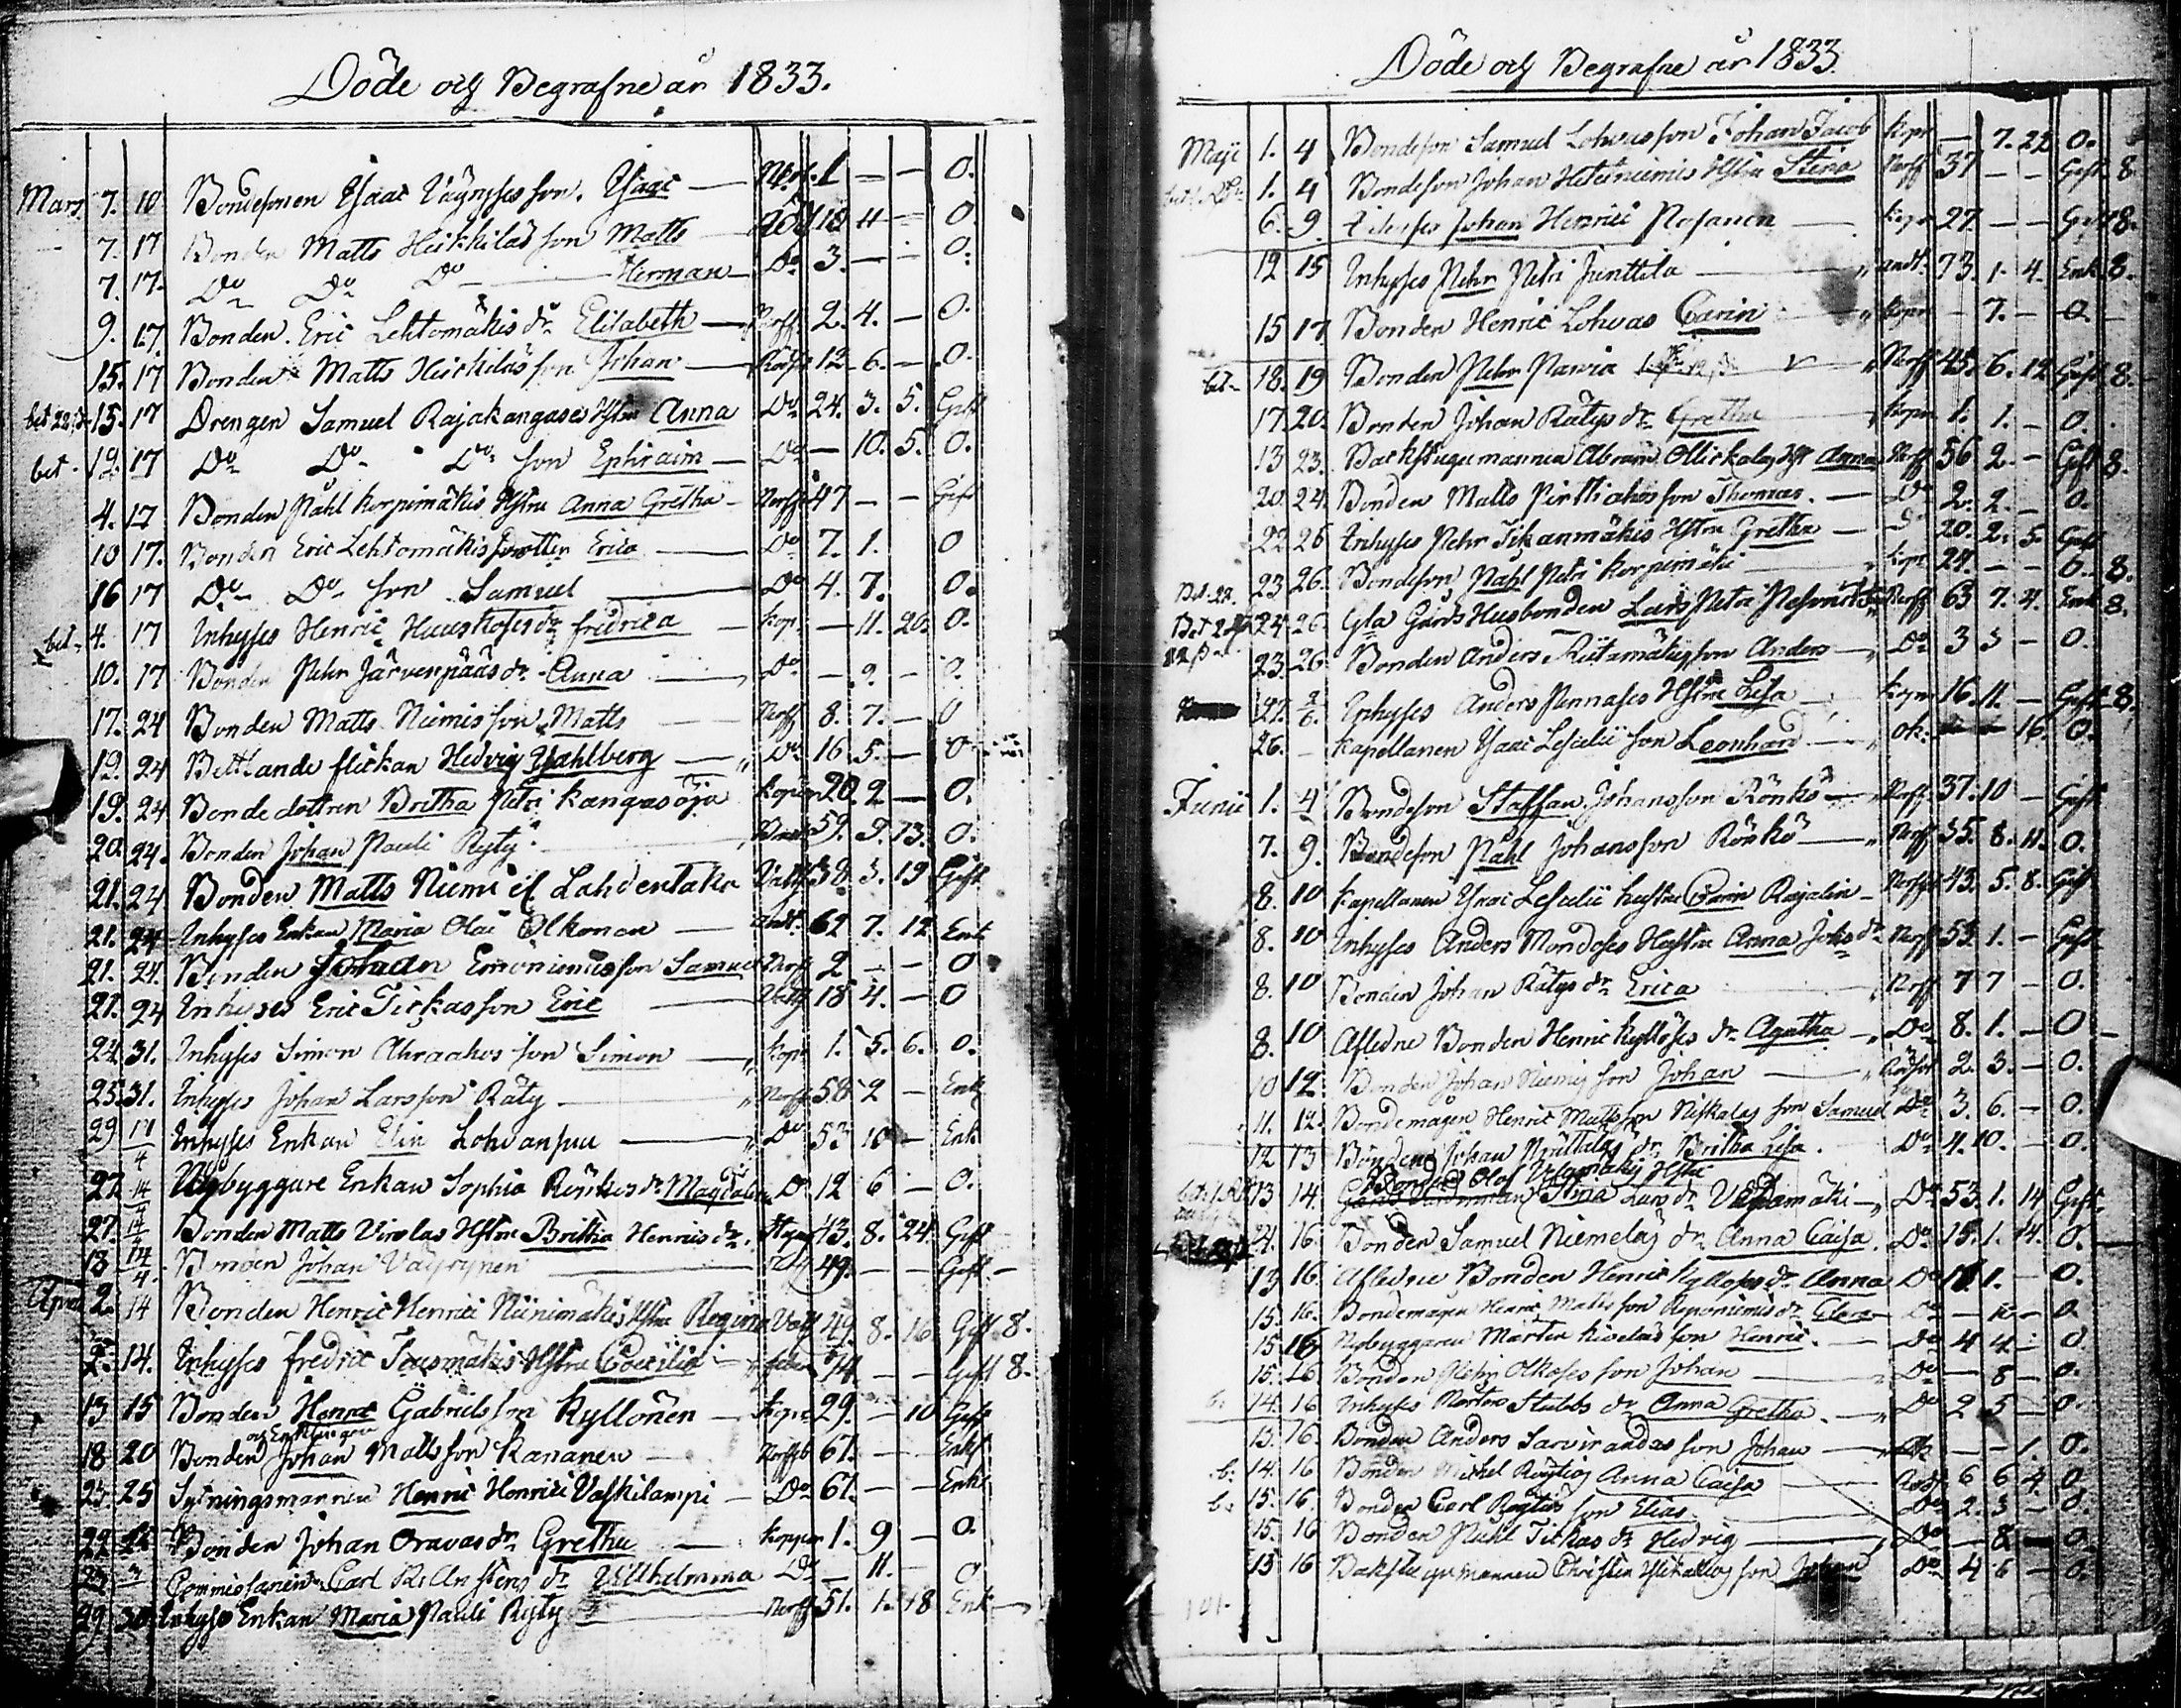 Döde och Begrafne år 1833.
Mars 7. 10 Bondesonen Isaac Väyrysses son. Isaac — 1 — — 0.
7. 17 Bonden Matts Heikkiläs son Matts 10 4 — 0.
7. 17. Do Do Do — Herman — Do 3. — — 0.
9. 17. Bonden Eric Lehtomäkis dr. Elisabeth — Nerff. 2. 4. — 0.
15. 17 Bonden Matts Heikkiläs son Johan — 12. 6. — 0.
bet 15. 17 Drengen Samuel Rajakangases Hstru Anna Do 24. 3. 5. Gift
bet. 19. 17 Do Do Do son Ephraim — Do — 10. 5. 0.
4. 17 Bonden Påhl Korpimäkis Hstru Anna Gretha — Nerff 47 — — Gift
10 17. Bonden Eric Lehtomäkis dotter Erica — Do 7. 1. 0
16 17 Do Do son Samuel — Do 4. 7. 0.
bet. 4. 17 Inhyses Henric Huuskoses dr. Fredrica — Kop. — 11. 20. 0.
10. 17 Bonden Pehr Järvenpääs dr. Anna — Do — 9. — 0.
17. 24 Bonden Matts Niemis son Matts — Nerff 8. 7. — 0
19. 24 Bettlande flickan Hedvig Wahlberg — Do 16. 5. — 0
19. 24 Bondedottren Britha Petri Kangasoja 20. 2 — 0.
20. 24. Bonden Johan Pauli Ryty. 59. 9. 13. 0.
21. 24 Bonden Matts Niemi el Lahdentaka 38. 3. 19 Gift
21. 24 Inhyses Enkan Maria Olai Olkonen — 62 7. 12 Enk
21. 24. Bonden Johan Emoniemis son Samuel Nerff 2 — — 0
21. 24 Inhyses Eric Tickas son Eric 18 4. — 0
24. 31. Inhyses Simon Ahraahos son Simon — Kop. 1. 5. 6. 0.
25. 31. Inhyses Johan Larsson Räty — Nerff 58 2 — Enk
29 Inhyses Enkan Elin Lohvansuu — Do 53 10 — Enk
27. 14/4 Nybyggare Enkan Sophia Rönkös dr. Magdalena Do 12 6 — 0.
27. 14/4 Bonden Matts Virolas Hstru Britha Henricsdr. 43. 8. 24. Gift
13 14/4. Bonden Johan Väyrynen — 49. — — Gift. —
April 2. 14 Bonden Henric Henrici Niinimäkis Hstru Regina 49. 8. 16 Gift 8.
2. 14. Inhyses Fredric Teusmäkis Hstru Caecilia — 74. — — Gift 8.
13 15 Bonden Henric Gabrielsson Kyllönen — 29. — 10 Gift
och Enklingen
18. 20 Bonden Johan Mattsson Kananen — 67. — — Enkl
23. 25 Sytningsmannen Henric Henrici Vaskilampi — Do 61. — — Enkl
22 Bonden Johan Oravas dr. Gretha — Koppor 1. 9 — 0.
23 Commissarien Carl dr. Wilhelmina Do — 11. — 0
29. 30. Inhyses Enkan Maria Pauli Ryty — Nerff 51. 1. 18 Enk
Döde och Begrafne år 1833.
Maji 1. 4 Bondeson Samuel Lohvas son Johan Jacob Kopr — 7. 22 0.
1. 4 Bondeson Johan Heteniemis Hstru Stina Nerff 37 — — Gift. 8.
6. 9. Inhyses Johan Henrici Mosanen — Kopr 27. — — Gift 8.
12 15 Inhyses Pehr Petri Junttila — 73. 1. 4. Enk. 8.
15 17 Bonden Henric Lohvas Carin — Kopr — 7. — 0. —
bet. 18. 19 Bonden Pehr Parvia Nerff 45. 6. 12 Gift 8.
17. 20. Bonden Johan Rätys dr. Gretha Kopr 1. 1. — 0.
13 23. Backstugumannen Abram Ollickalas Hstr Anna Nerff 56 2. — Gift 8.
20. 24. Bonden Matts Pirttiahos son Thomas. — Do 2. 2. — 0.
22 26 Inhyses Pehr Tikanmäkis Hstru Gretha — Do 20. 2. 5. Gift
Bet. 22. 23 26. Bondeson Påhl Petri Korpimäki Kopr 24. — — 0. 8.
24. 26. Gla Gårds Husbonden Lars Petri Nerff 63 7. 4. Enk 8.
23. 26. Bonden Anders son Anders — Do 3 3 — 0.
27. 2/6. Inhyses Anders Pennases Hstru Lisa Kopr 16. 11. — Gift 8.
26. — Kapellanen Isaac Lescelii son Leonhard — ok. 16. 0.
Junii 1. 4 Bondeson Staffan Johansson Rönkö — Nerff 37. 10 — Gift
7. 9. Bondeson Påhl Johansson Rönkö — Nerff 35. 8. 11. 0.
8. 10 Kapellanen Isaac Lescelii hustru Carin Rajalin — Nerff 43. 5. 8. Gift
8. 10 Inhyses Anders Mondoses Hustru Anna Johs dr. Nerff 53. 1. — Gift
8. 10 Bonden Johan Rätys dr. Erica Nerff 7 7 — 0.
8. 10 Afledne Bonden Henric Kyllöses dr. Agatha — Do 8. 1. — 0 —
10 12. Bonden Johan Niemis son Johan — 2. 3. — 0.
11. 12. Bondemågen Henric Mattsson Niskalas son Samuel Do 3. 6. — 0.
12 13 Bonden Johan dr. Britha Lisa. Do 4. 10. — 0.
Bonden Olof Ulgmäkis Hstru
13 14. Stina Lars dr. Do 53. 1. 14 Gift.
21. 16. Bonden Samuel Niemeläs dr. Anna Caisa. Do 15. 1. 14. 0.
13 16. Afledne Bonden Henric Kyllöses dr. Anna Do 11. — 0.
15. 16. Bondemågen Henric Mattsson Reponiemis dr. Clara — Do — 0.
15. 16 Nybyggaren Mårten Kivelas son Henric. — Do 4 4. — 0
15. 16. Bonden Pehr Olkoses son Johan — Do — 8 — 0.
b. 14. 16 Inhyses Mårten Stubbs dr. Anna Gretha. — Do 2 5 — 0.
15. 16. Bonden Anders Sarvirandas son Johan — — — 1. 0.
b. 14. 16 Bonden Michel Röytiös Anna Caisa — 6 6 4. 0
b. 15. 16. Bonden Carl Röytiös son Elias Do 2. 3 — 0.
15. 16 Bonden Påhl Tickas dr. Hedvig — Do — 8 — 0.
15 16 Backstugumannen Christer son Johan Do 4 6 — 0.